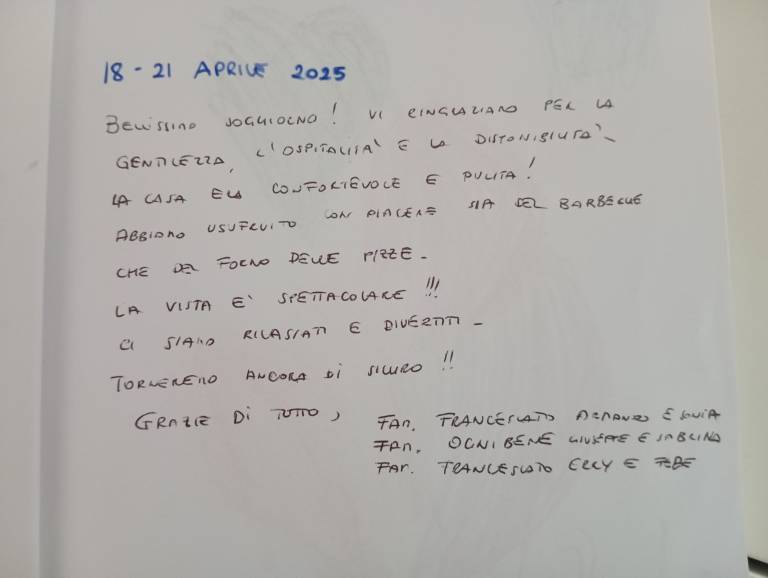 18 - 21 APRILE 2025
BELLISSIMO SOGGIORNO! VI RINGRAZIAMO PER LA
GENTILEZZA, L'OSPITALITA' E LA DISPONIBILITA'-
LA CASA ERA CONFORTEVOLE E PULITA!
ABBIAMO USUFRUITO CON PIACERE SIA DEL BARBECUE
CHE DEL FORNO DELLE PIZZE-
LA VISTA E' SPETTACOLARE !!!
CI SIAMO RILASSATI E DIVERTITI-
TORNEREMO ANCORA DI SICURO !!
GRAZIE DI TUTTO,
FAM. FRANCESCATO ARMANDO E SILVIA
FAM. OGNIBENE GIUSEPPE E SABRINA
FAM. FRANCESCATO ERCY E FEDE